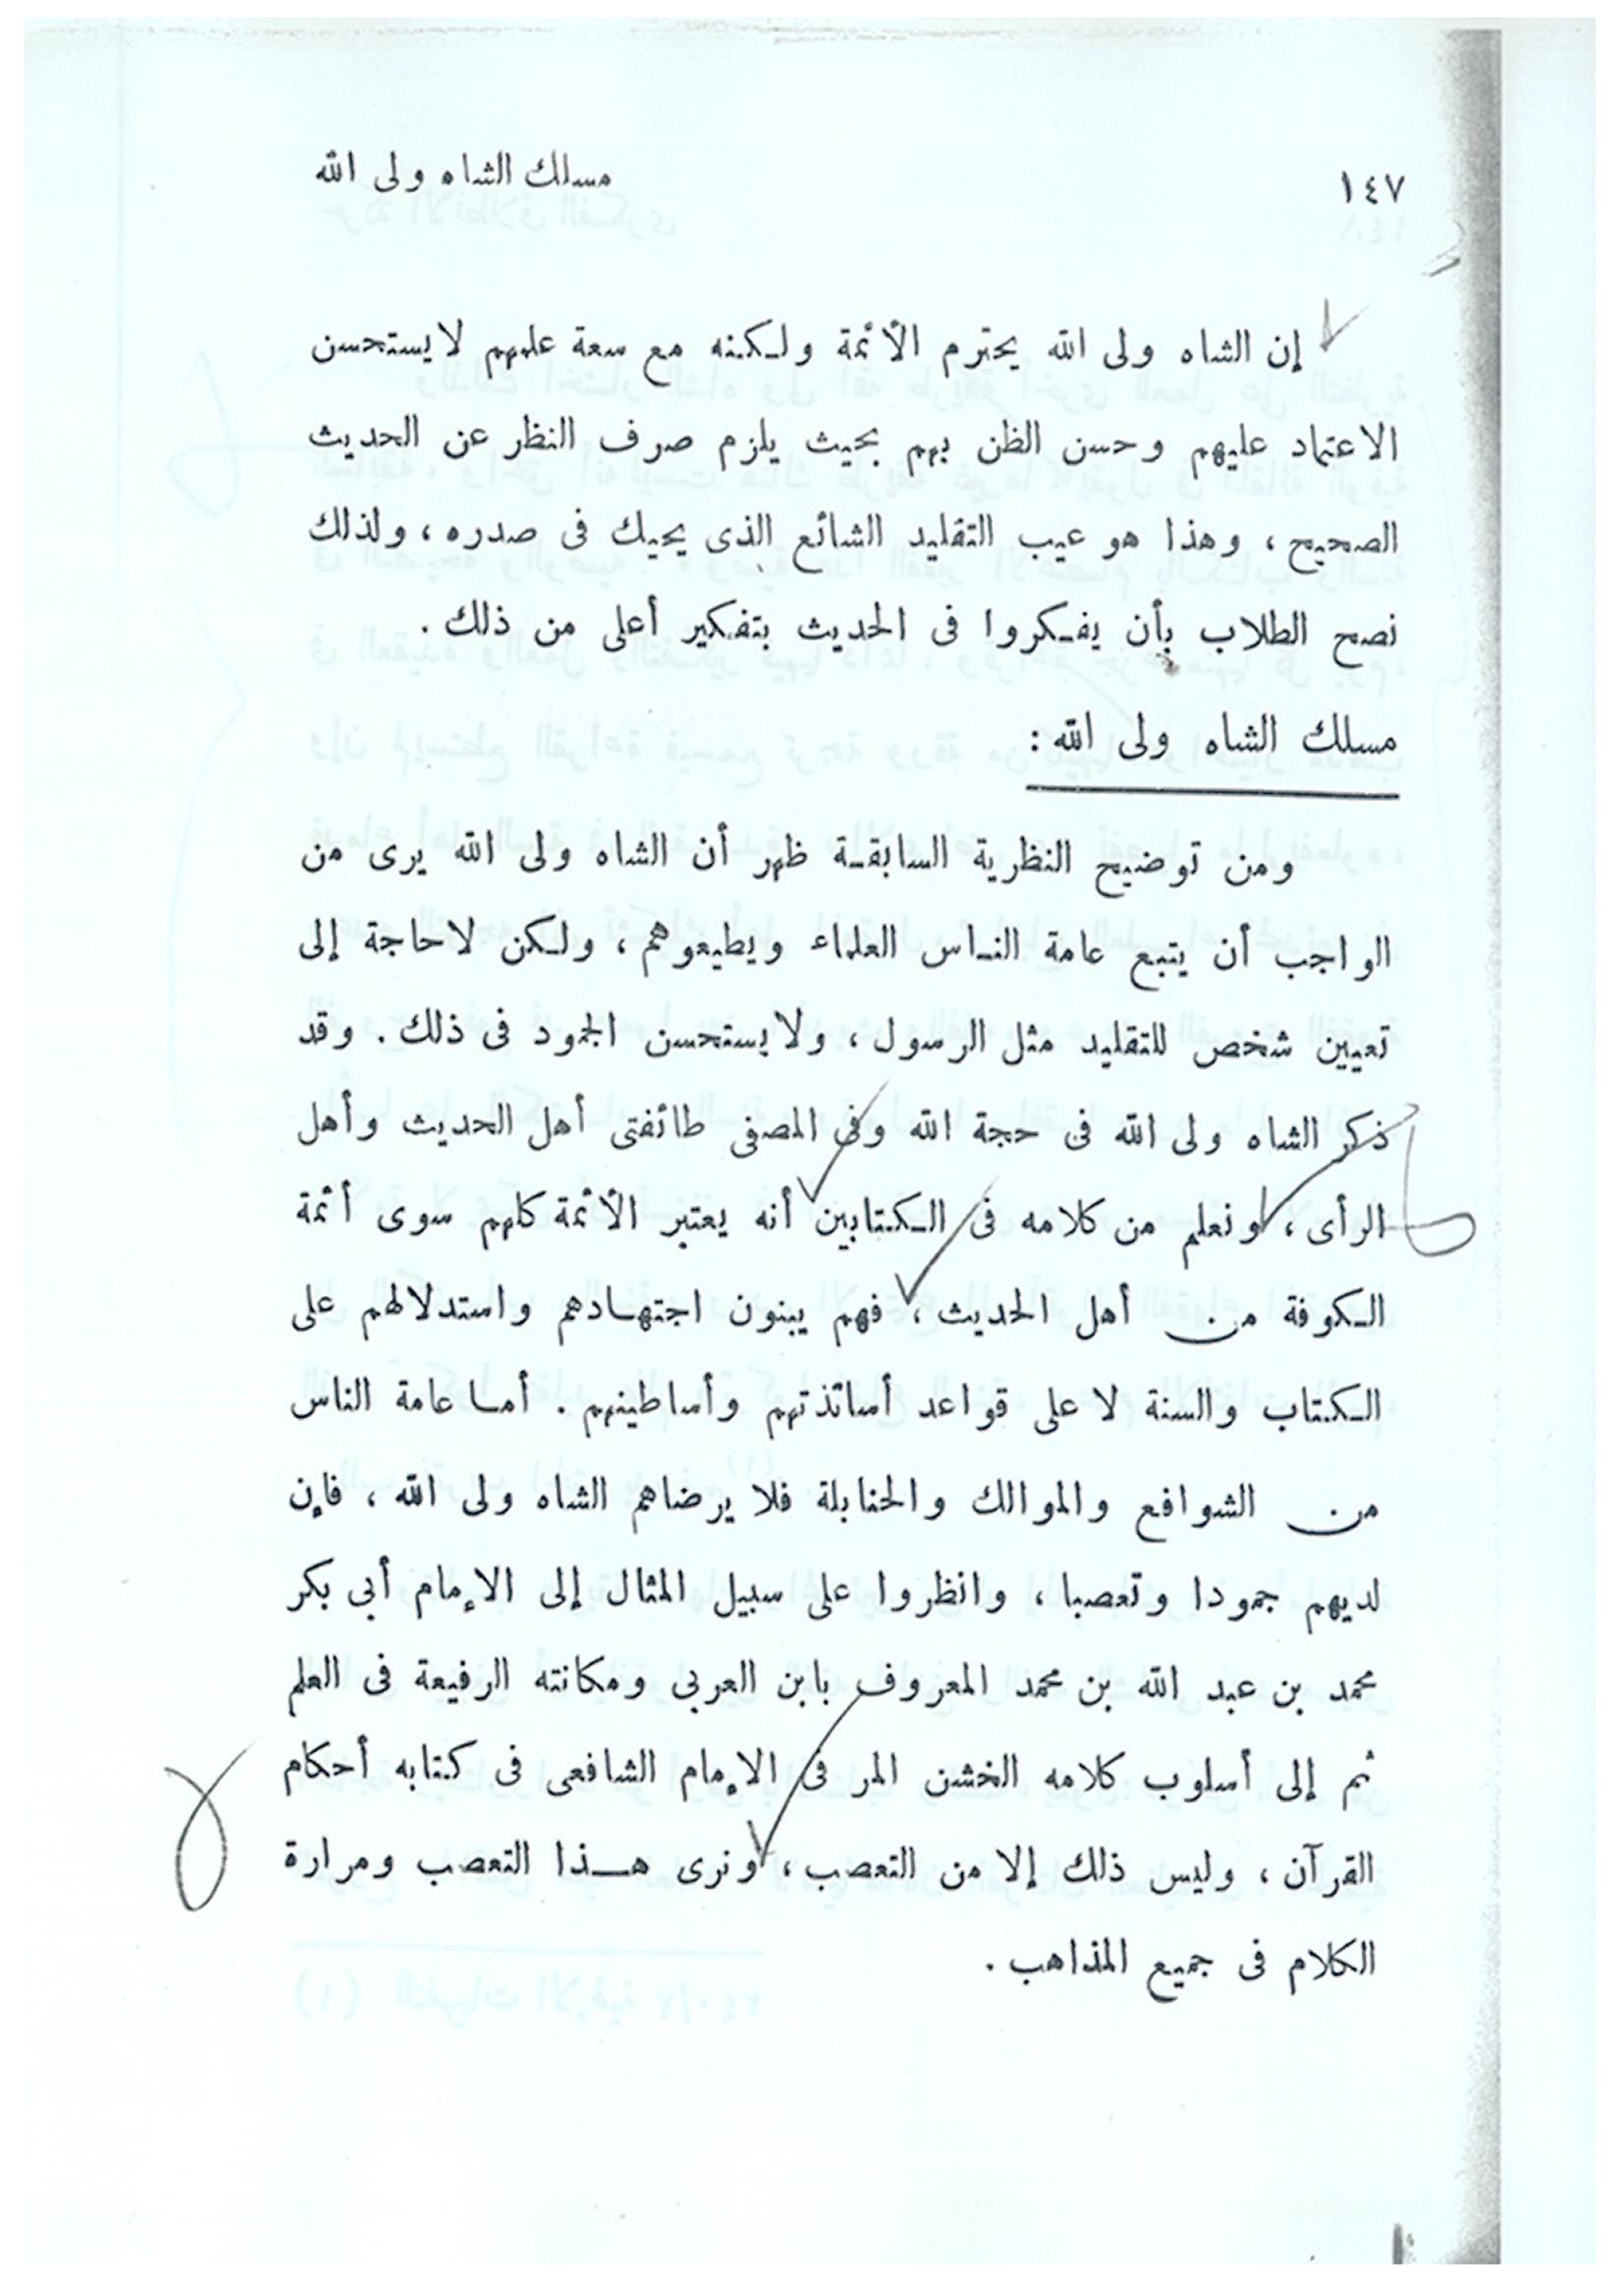 ١٤٧
مسلك الشاه ولى الله
إن الشاه ولى الله يحترم الأئمة ولكنه مع سعة علمهم لا يستحسن
الاعتماد عليهم وحسن الظن بهم بحيث يلزم صرف النظر عن الحديث
الصحيح ، وهذا هو عيب التقليد الشائع الذى يحيك فى صدره ، ولذلك
نصح الطلاب بأن يفكروا فى الحديث بتفكير أعلى من ذلك .
مسلك الشاه ولى الله :
ومن توضيح النظرية السابقة ظهر أن الشاه ولى الله يرى من
الواجب أن يتبع عامة الناس العلماء ويطيعوهم ، ولكن لا حاجة إلى
تعيين شخص للتقليد مثل الرسول ، ولا يستحسن الجمود فى ذلك . وقد
ذكر الشاه ولى الله فى حجة الله وفى المصفى طائفتى أهل الحديث وأهل
الرأى ، ونعلم من كلامه فى الكتابين أنه يعتبر الأئمة كلهم سوى أئمة
الكوفة من أهل الحديث ، فهم يبنون اجتهادهم واستدلالهم على
الكتاب والسنة لا على قواعد أساتذتهم وأساطينهم . أما عامة الناس
من الشوافع والموالك والحنابلة فلا يرضاهم الشاه ولى الله ، فإن
لديهم جمودا وتعصبا ، وانظروا على سبيل المثال إلى الإمام أبي بكر
محمد بن عبد الله بن محمد المعروف بابن العربي ومكانته الرفيعة فى العلم
ثم إلى أسلوب كلامه الخشن المر فى الإمام الشافعى فى كتابه أحكام
القرآن ، وليس ذلك إلا من التعصب ، ونرى هذا التعصب ومرارة
الكلام فى جميع المذاهب .